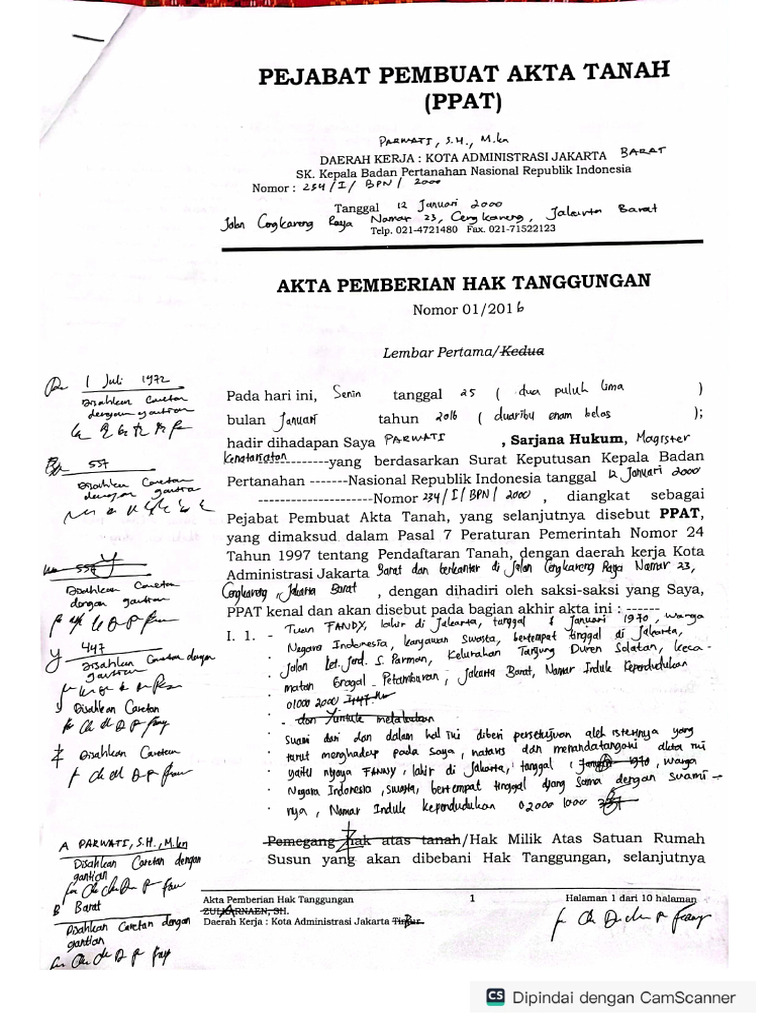 PEJABAT PEMBUAT AKTA TANAH
(PPAT)
PARWATI, S.H., M.kn
DAERAH KERJA : KOTA ADMINISTRASI JAKARTA BARAT
SK. Kepala Badan Pertanahan Nasional Republik Indonesia
Nomor : 234/I/BPN/2000
Tanggal 12 Januari 2000
Jalan Cengkareng Raya Nomar 23, Cengkareng, Jakarta Barat
Telp. 021-4721480 Fax. 021-71522123
AKTA PEMBERIAN HAK TANGGUNGAN
Nomor 01/2016
Lembar Pertama/Kedua
Pada hari ini, Senin tanggal 25 ( dua puluh lima )
bulan Januari tahun 2016 ( duaribu enam belas );
hadir dihadapan Saya PARWATI , Sarjana Hukum, Magister
Kenotariatan------------yang berdasarkan Surat Keputusan Kepala Badan
Pertanahan -------Nasional Republik Indonesia tanggal 12 Januari 2000
----------------------Nomor 234/I/BPN/2000 , diangkat sebagai
Pejabat Pembuat Akta Tanah, yang selanjutnya disebut PPAT,
yang dimaksud dalam Pasal 7 Peraturan Pemerintah Nomor 24
Tahun 1997 tentang Pendaftaran Tanah, dengan daerah kerja Kota
Administrasi Jakarta Barat dan berkantor di Jalan Cengkareng Raya Namar 23,
Cengkareng, Jakarta Barat , dengan dihadiri oleh saksi-saksi yang Saya,
PPAT kenal dan akan disebut pada bagian akhir akta ini : ------
I. 1. - Tuan FANDY, lahir di Jakarta, tanggal 1 Januari 1970, warga
Negara Indonesia, karyawan swasta, bertempat tinggal di Jakarta,
Jalan Let. Jord. S. Parman, Kelurahan Tanjung Duren Selatan, keca-
matan Grogal Petamburan, Jakarta Barat, Namar Induk Kependudukan
01000 2000
suami dari dan dalam hal ini diberi persetujuan aleh isterinya yang
turut menghadap pada saya, notaris dan menandatangani akta ini
yaitu nyonya FANNY, lahir di Jakarta, tanggal 1970, warga
Negara Indonesia, swasta, bertempat tinggal yang sama dengan suami-
nya, Namar Induk kependudukan 02000 1000
Pemegang hak atas tanah/Hak Milik Atas Satuan Rumah
Susun yang akan dibebani Hak Tanggungan, selanjutnya
1 Juli 1972
Disahkan Caretan
dengan gantian
557
Disahkan Caretan
dengan gantian
557
Disahkan Caretan
dengan gantian
447
Disahkan Caretan dengan
gantian
Disahkan Caretan
Disahkan Caretan
A PARWATI, S.H., M.kn
Disahkan Caretan dengan
gantian
B Barat
Disahkan Caretan dengan
gantian
Akta Pemberian Hak Tanggungan 1 Halaman 1 dari 10 halaman
ZULKARNAEN, SH.
Daerah Kerja : Kota Administrasi Jakarta Timur
CS Dipindai dengan CamScanner